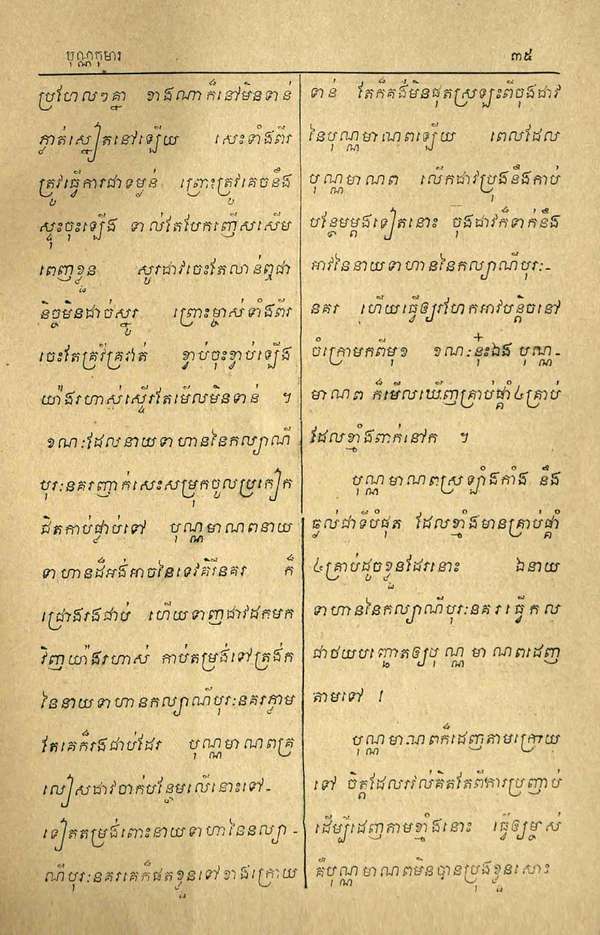 បុណ្ណកុមារ
៣៥
ប្រហែលៗគ្នា ខាងណាក៏នៅមិនទាន់
ភ្លាត់ស្នៀតនៅឡើយ សេះទាំងពីរ
ត្រូវធ្វើការជាទម្ងន់ ព្រោះត្រូវគេចនឹង
ស្ទុះចុះឡើង ទាល់តែបែកញើសសើម
ពេញខ្លួន សូរដាវចេះតែលាន់ឮជា
និច្ចមិនដាច់ស្នូរ ព្រោះម្ចាស់ទាំងពីរ
ចេះតែគ្រវីគ្រវាត់ ខ្វាប់ចុះខ្វាប់ឡើង
យ៉ាងរហ័សស្ទើរតែមើលមិនទាន់ ។
ខណៈដែលនាយទាហាននៃកល្យាណី
បុរៈនគរញាក់សេះសម្រុកចូលប្រកៀក
ជិតកាប់ផ្ទាប់ទៅ បុណ្ណមាណពនាយ
ទាហានដ៏អង់អាចនៃទេវគិរីនគរ ក៏
ជ្រោងរងជាប់ ហើយទាញដាវដកមក
វិញយ៉ាងរហ័ស កាប់តម្រង់ទៅត្រង់ក
នៃនាយទាហានកល្យាណីបុរៈនគរភ្លាម
តែគេក៏រងជាប់ដែរ បុណ្ណមាណពគ្រ
លៀសដាវចាក់បន្ថែមលើនោះទៅ-
ទៀតតម្រង់ពោះនាយទាហាននៃនល្យា-
ណីបុរៈនគរគេក៏ផតខ្លួនទៅខាងក្រោយ
ទាន់ តែក៏គង់មិនផុតស្រឡះពីចុងដាវ
នៃបុណ្ណមាណពឡើយ ពេលដែល
បុណ្ណមាណព លើកដាវប្រុងនឹងកាប់
បន្ថែមម្ដងទៀតនោះ ចុងដាវក៏ទាក់នឹង
អាវនៃនាយទាហាននៃកល្យាណីបុរៈ-
នគរ ហើយធ្វើឲ្យរហែកអាវបន្តិចនៅ
ចំក្រោមកពីមុខ ខណៈនុះឯង បុណ្ណ-
មាណព ក៏មើលឃើញគ្រាប់ផ្គាំ៤គ្រាប់
ដែលខ្មាំងពាក់នៅក ។
បុណ្ណមាណពស្រឡាំងកាំង នឹង
ធ្ងល់ជាទីបំផុត ដែលខ្មាំងមានគ្រាប់ផ្គាំ
៤គ្រាប់ដូចខ្លួនដែរនោះ ឯនាយ
ទាហាននៃកល្យាណីបុរៈនគរធ្វើកល
ជាថយបញ្ឆោតឲ្យបុណ្ណមាណពដេញ
តាមទៅ !
បុណ្ណមាណពក៏ដេញតាមក្រោយ
ទៅ ចិត្តដែលរវល់គិតតែពីការប្រញាប់
ដើម្បីដេញតាមខ្មាំងនោះ ធ្វើឲ្យម្ចាស់
គឺបុណ្ណមាណពមិនបានប្រុងខ្លួនសោះ